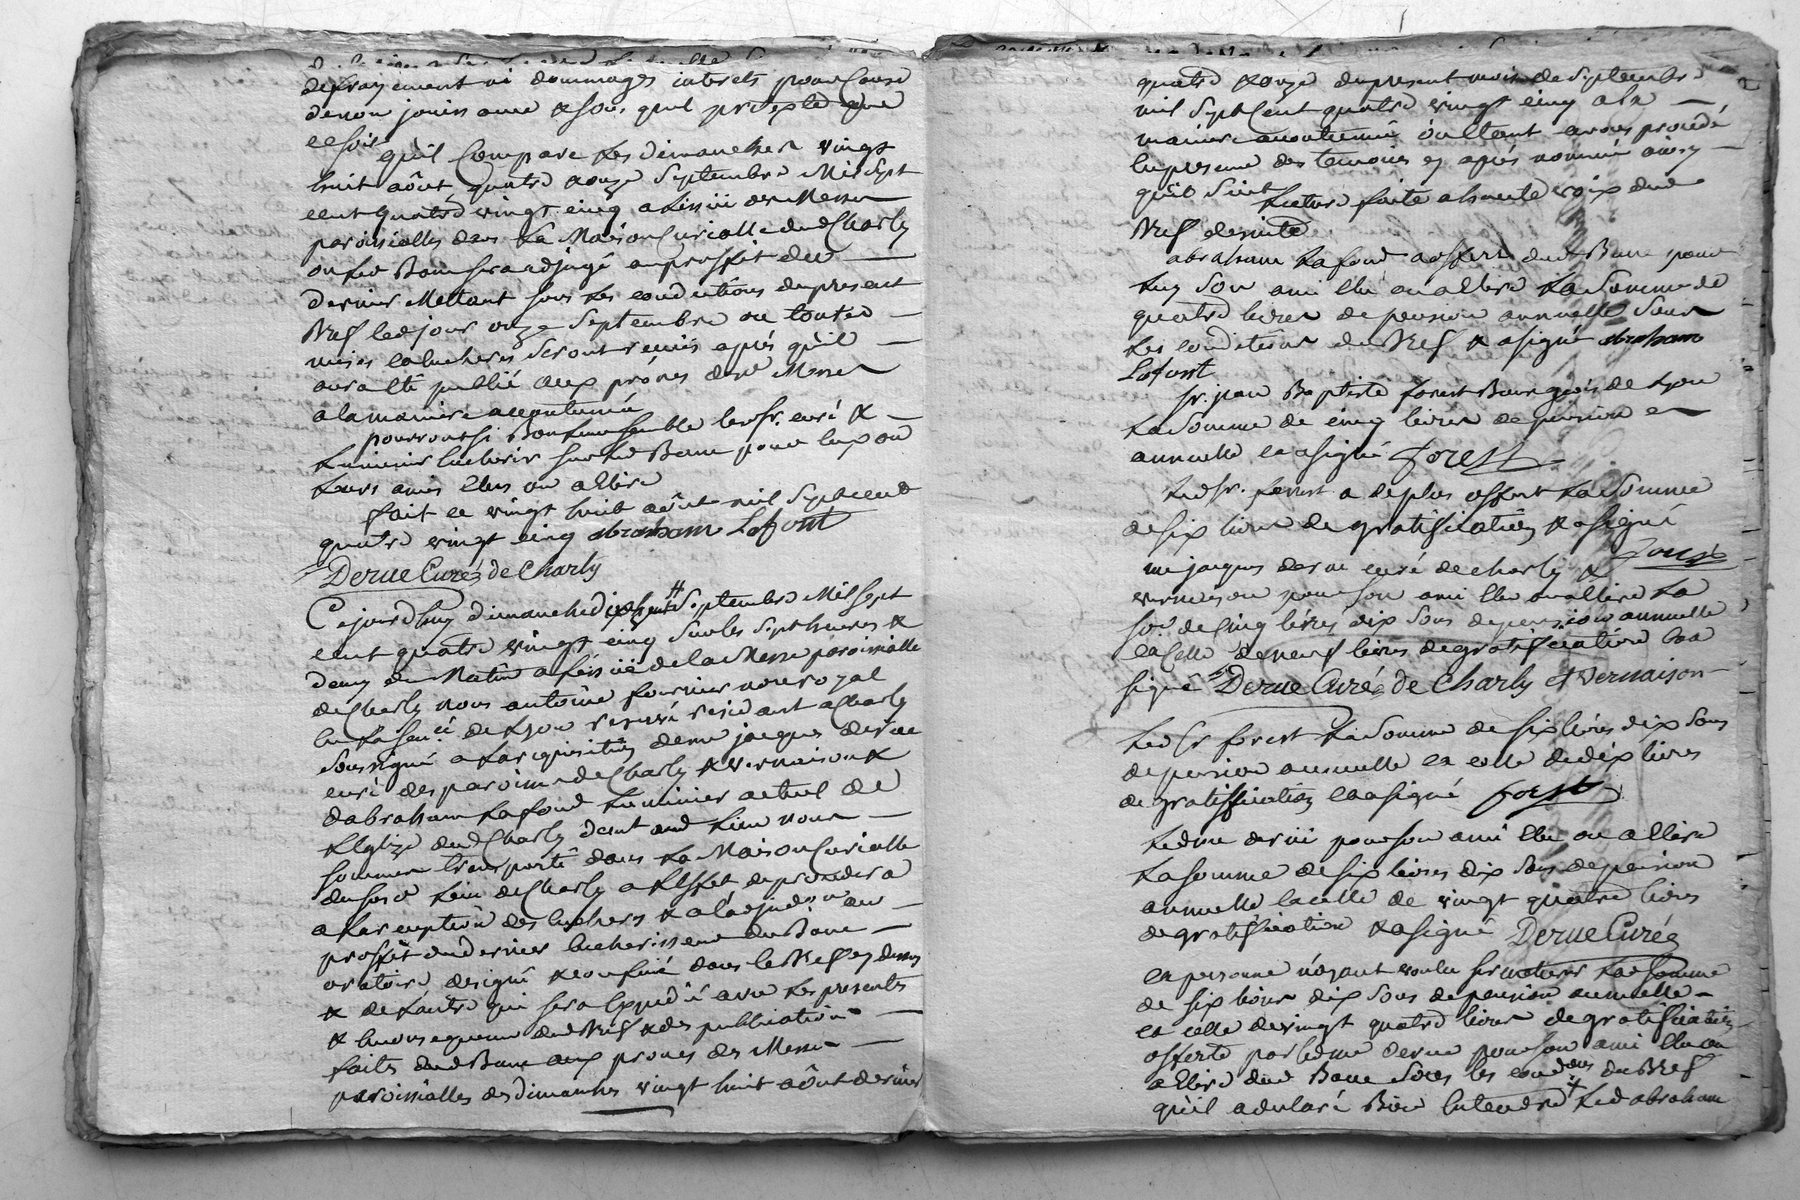 defrayement ni dommages interets pour Cause
de non jouissance & sous quel pretexte que
ce soit
qu'il Compare Les dimanches vingt
huit aôut quatre & onze Septembre Mil Sept
cent quatre vingt cinq a Lissüe des Messes
paroissialles dans La Maison Curialle dud Charly
ou Led Banc sera adjugé au proffit du
dernier Mettant sous Les conditions du present
Bref led jour onze Septembre ou toutes
mises encheres seront remis aprés qu'il
aura été publié aux prônes desd Messes
a la maniere accoutumée
pourront si Bon Leur semble lesd sr. curé &
Luminier Encherir sur Led Banc pour Eux ou
Leurs amis Elus ou a Elire
fait ce vingt huit aôut mil Sept cent
quatre vingt cinq abraham Lafont
Derue Curé de Charly
Cejourdhuy dimanche Septembre Mil Sept
cent quatre vingt cinq sur les Sept heures &
demy du Matin a Lissüe de la Messe paroissialle
de Charly nous antoine fournier nore royal
en La Senée. de Lyon reservé residant a Charly
soussigné a La requisition de me jacques derue
curé des paroisses de Charly & vernaison &
dabraham Lafond Luminier actuel de
LEglize dud Charly dud Lieu nous
sommes transporté dans La Maison Curialle
dud Lieu de Charly a LEffet de proceder a
a La reception des Encheres & a l'adjudon au
proffit du dernier Encherisseur du Banc
oratoire designé & confiné dans le Bref cy dessus
& de Lautre qui sera Expedié avec Les presentes
& En consequence dud Bref & des publications
faites dud Banc aux prones des Messes
paroissialles des dimanches vingt huit aôut dernier
quatre & onze du present mois de Septembre
mil Sept Cent quatre vingt cinq a la
maniere accoutumée avons procédé
En presence des temoins cy aprés nommés ainsy
qu'il Suit Lecture faite a haute voix dud
Bref desuite
abraham Lafond a offert dud Banc pour
Luy Son ami Elu ou a Elire La Somme de
quatre livres de pension annuelle Sous
Les conditions du Bref & a signé abraham
Lafont
Sr. jean Baptiste forest Bourgeois de Lyon
La Somme de cinq livres de pension
annuelle & a signé forest
Led Sr. forest a deplus offert La Somme
de six livres de gratiffication & a signé
forest
me jacques derue curé de charly &
vernaison pour son ami Elu ou a Elire La
Soe. de Cinq livres dix Sous de pension annuelle
En Celle de neuf livres de gratiffication & a
signé Derue Curé de Charly et Vernaison
Led Sr forest La Somme de six livres dix Sous
de pension annuelle en celle de dix livres
de gratiffication & a signé forest
Led me derue pour son ami Elu ou a Elire
La somme de six livres dix Sous de pension
annuelle en celle de vingt quatre livres
de gratiffication & a signé Derue Curé
et personne n'ayant voulu surencherir La Somme
de six livres dix Sous de pension annuelle
et celle de vingt quatre livres de gratiffication
offerte par led me derue pour son ami Elu ou
a Elire dud Banc Sous les condons du Bref
qu'il a declaré Bien Entendre Led abraham